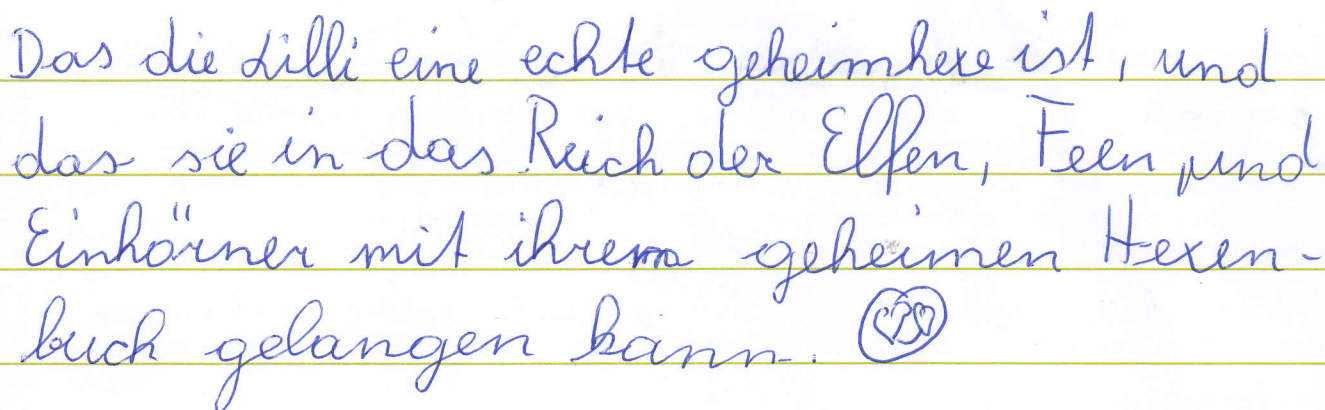 Das die Lilli eine echte geheimhexe ist, und
das sie in das Reich der Elfen, Feen, und
Einhörner mit ihrem geheimen Hexen-
buch gelangen kann.